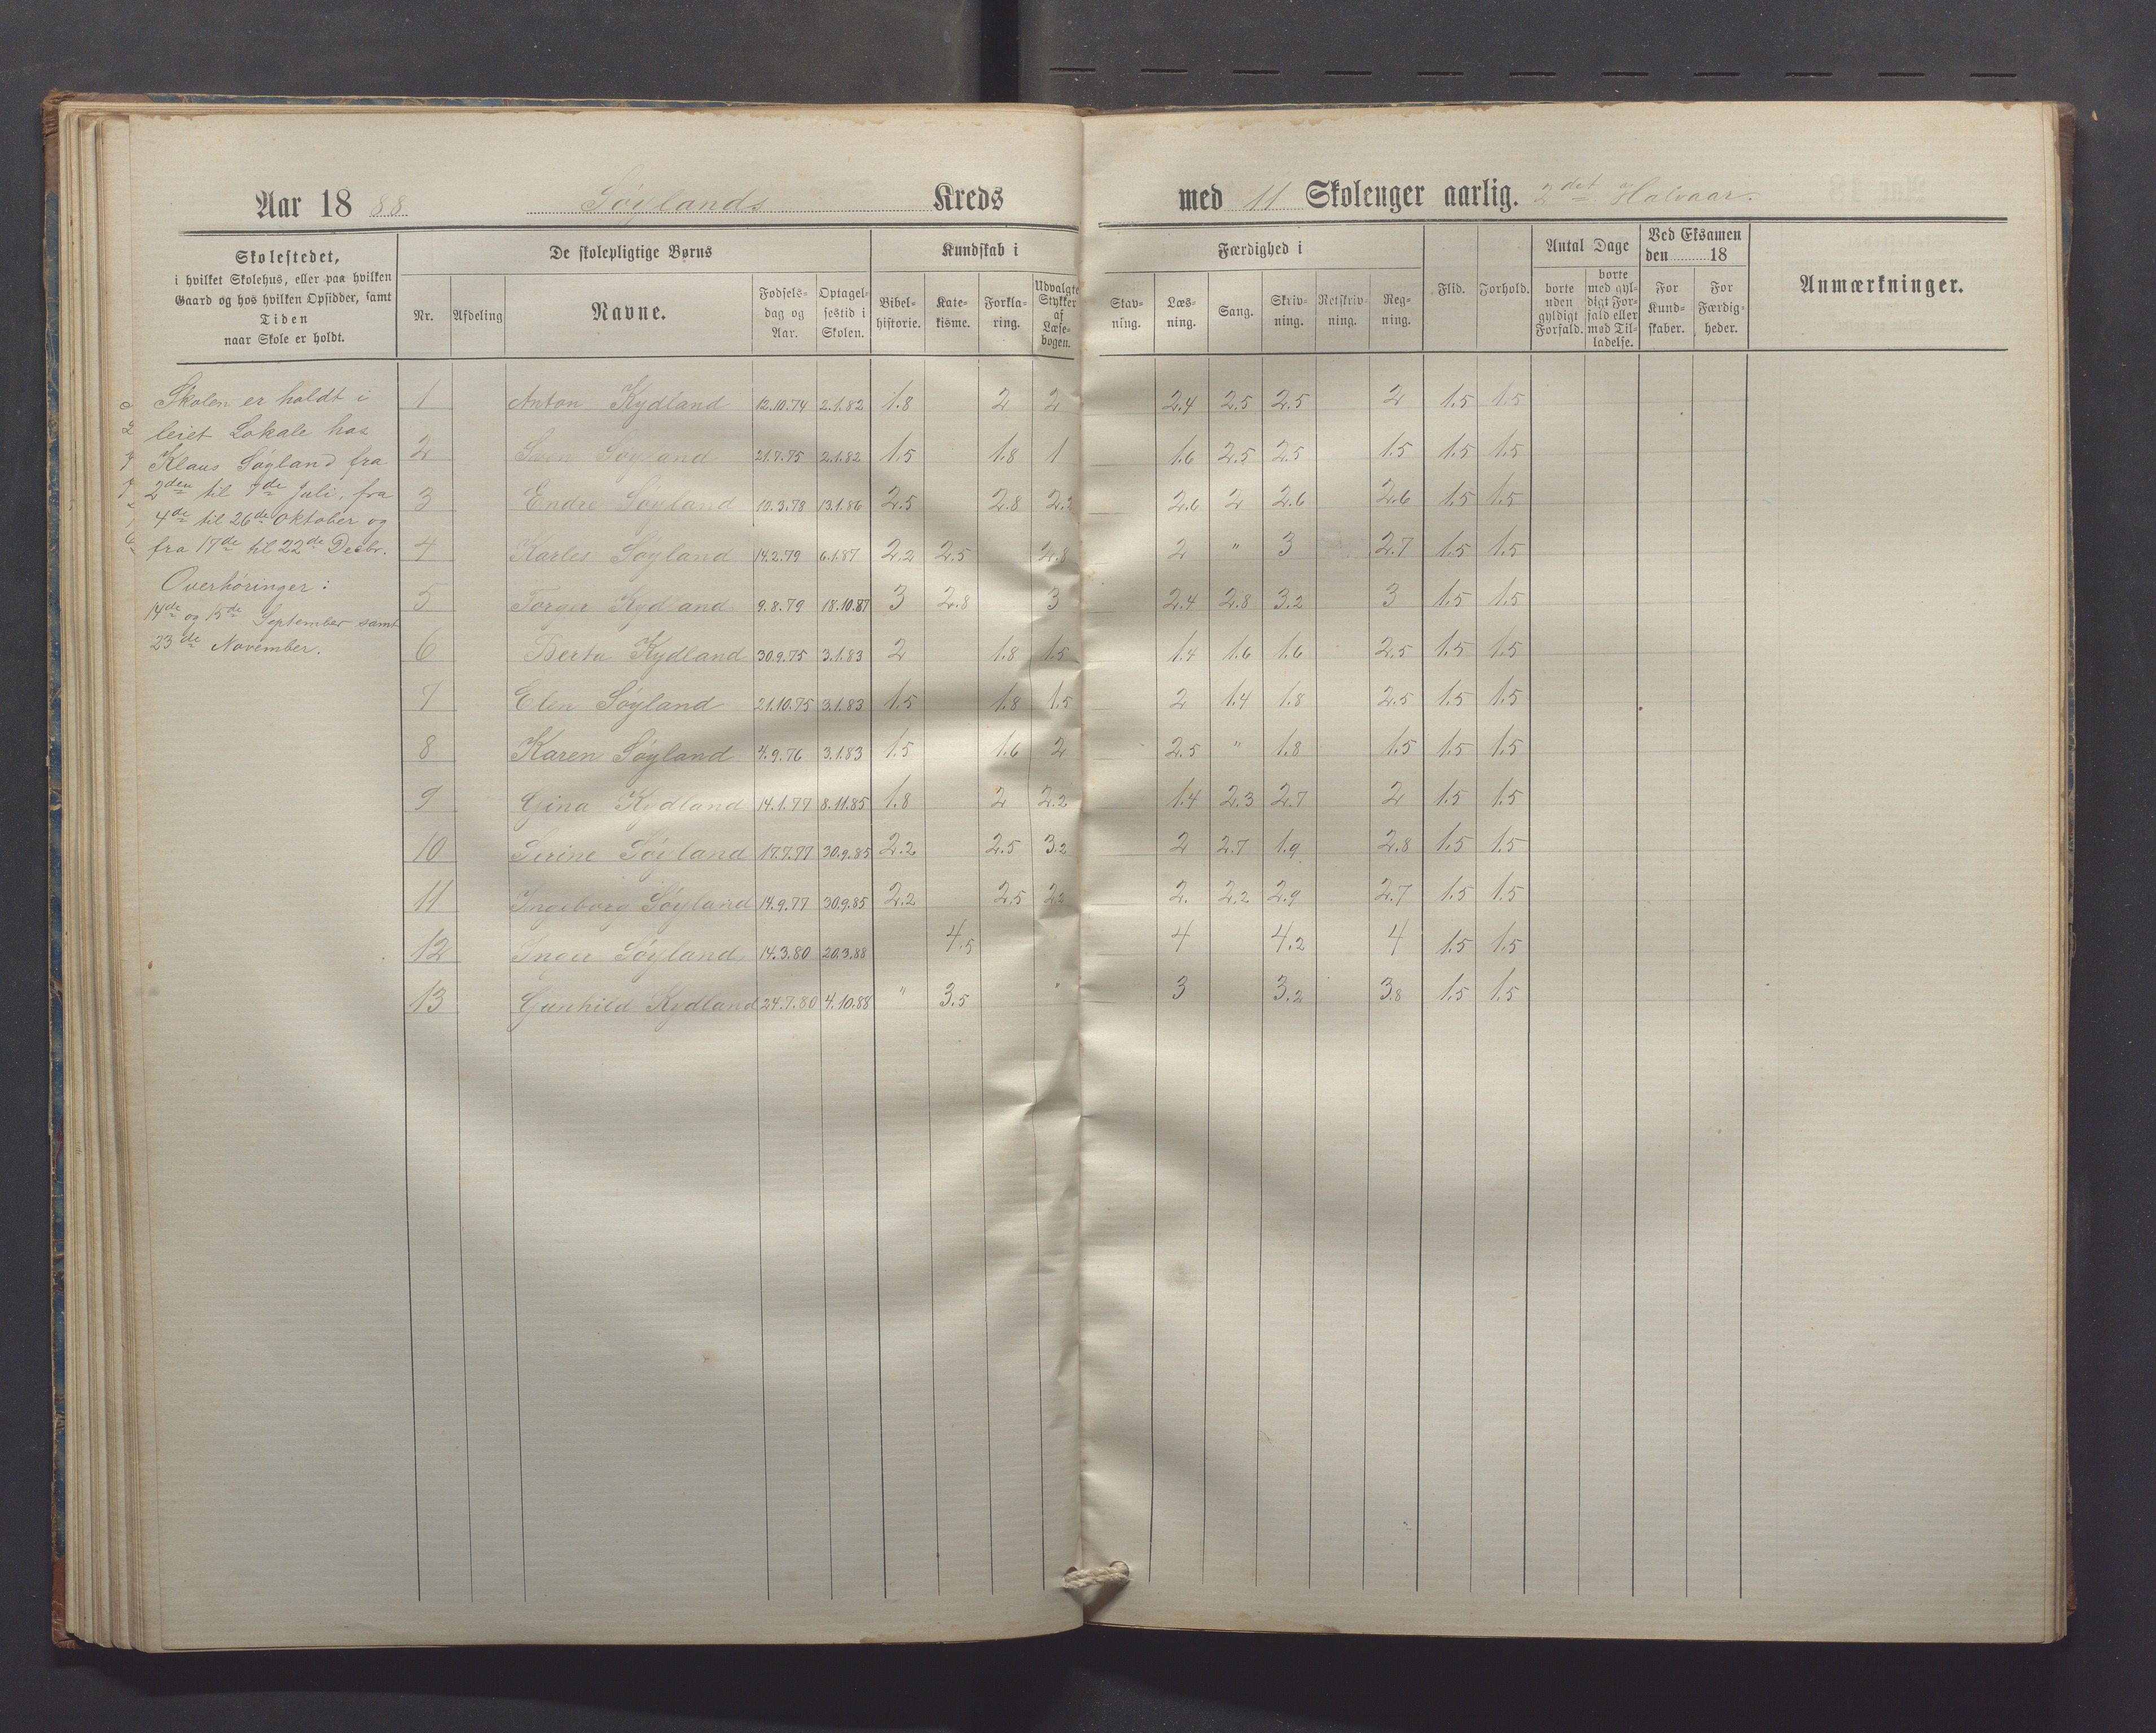 Aar 1888 Søylands Kreds med 11 Skoleuger aarlig. 2det Halvaar.
Skolestedet,
i hvilket Skolehus, eller paa hvilken
Gaard og hos hvilken Opsidder, samt
Tiden
naar Skole er holdt.
De skolepligtige Børns
Nr. Afdeling Navne. Fødsels-dag og Aar. Optagel-sestid i Skolen.
Kundskab i
Bibel-historie. Kate-kisme. Forkla-ring. Udvalgte Stykker af Læse-bogen.
Færdighed i
Stav-ning. Læs-ning. Sang. Skriv-ning. Retskriv-ning. Reg-ning.
Flid. Forhold.
Antal Dage
borte uden gyldigt Forfald. borte med gyl-digt For-fald eller med Til-ladelse.
Ved Eksamen den 18
For Kund-skaber. For Færdig-heder.
Anmærkninger.
Skolen er holdt i
leiet Lokale hos
Klaus Søyland fra
2den til 7de Juli, fra
4de til 26de Oktober og
fra 17de til 22de Decbr.
Overhøringer:
14de og 15de September samt
23de November.
1 Anton Kydland 12.10.74 2.1.82 1.8 2 2 2.4 2.5 2.5 2 1.5 1.5
2 Sven Søyland 21.7.75 2.1.82 1.5 1.8 1 1.6 2.5 2.5 1.5 1.5 1.5
3 Endre Søyland 10.3.78 13.1.86 2.5 2.8 2.2 2.6 2 2.6 2.6 1.5 1.5
4 Karles Søyland 14.2.79 6.1.87 2.2 2.5 2.8 2 " 3 2.7 1.5 1.5
5 Torger Kydland 9.8.79 18.10.87 3 2.8 3 2.4 2.8 3.2 3 1.5 1.5
6 Berta Kydland 30.9.75 3.1.83 2 1.8 1.5 1.4 1.6 1.6 2.5 1.5 1.5
7 Elen Søyland 21.10.75 3.1.83 1.5 1.8 1.5 2 1.4 1.8 2.5 1.5 1.5
8 Karen Søyland 4.9.76 3.1.83 1.5 1.6 2 2.5 " 1.8 1.5 1.5 1.5
9 Gina Kydland 14.1.77 8.11.85 1.8 2 2.2 1.4 2.3 2.7 2 1.5 1.5
10 Serine Søyland 17.7.77 30.9.85 2.2 2.5 3.2 2 2.7 1.9 2.8 1.5 1.5
11 Ingeborg Søyland 14.9.77 30.9.85 2.2 2.5 2.2 2. 2.2 2.9 2.7 1.5 1.5
12 Inger Søyland 14.3.80 20.3.88 4.5 4 4.2 4 1.5 1.5
13 Gunhild Kydland 24.7.80 4.10.88 " 3.5 " 3 3.2 3.8 1.5 1.5